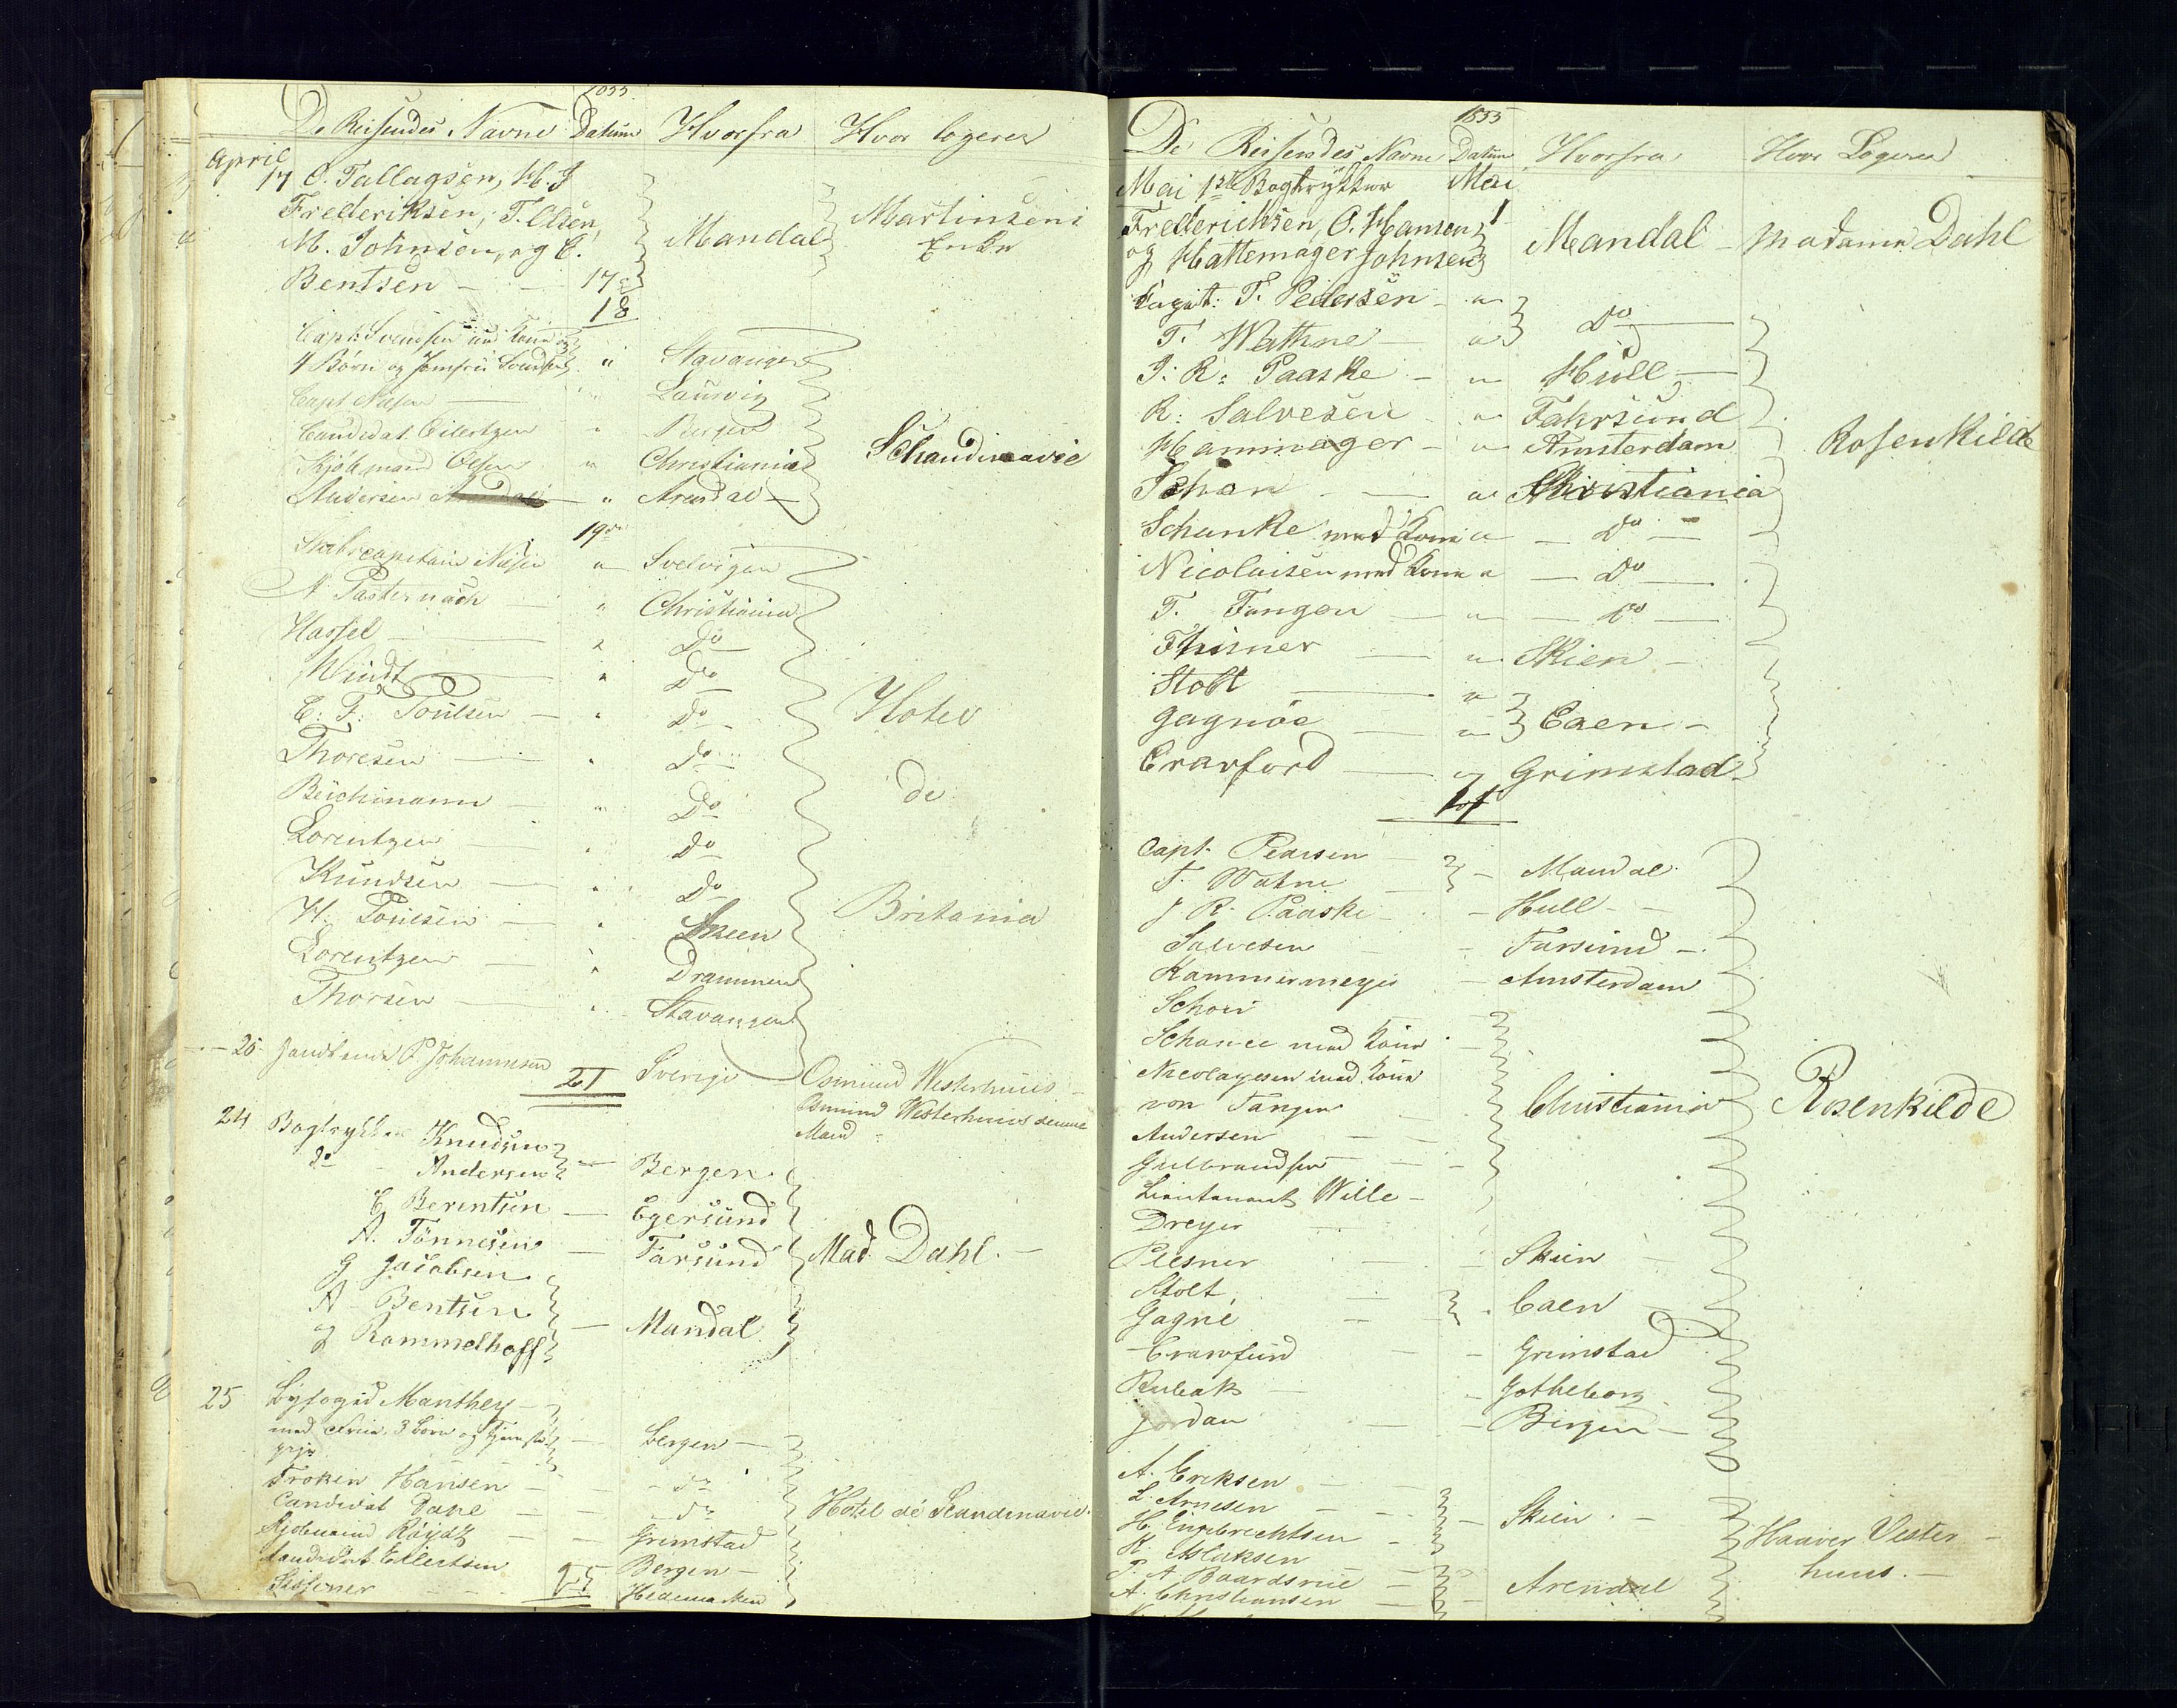 1855
De Reisendes Navne Datum Hvorfra Hvor logerer
April
17 O. Tallagsen, H. J
Frederiksen, T. Olsen,
M. Johnsen, og C. Mandal Martinsens
Bentsen 17 Enke
18
Capt: Svendsen med Kone og
4 Børn og Jomfru " Stavanger
Capt Nielsen " Laurvig
Candidat Eilertzen " Bergen
Kjøbmand Olsen " Christiania Schandinavie
Andersen " Arendal
19
Skibscapitain " Svelvigen
N. Pasternach " Christiania
Hassel " Do
Windt " Do
C: F: Poulsen " Do Hotel
Thoresen " Do
Beichmann " Do de
Lorentzen " Do
Knudsen " Do
H. Poulsen " Skeen Britania
Lorentzen " Drammen
Thorsen " Stavanger
P. Johannesen 21 Sverige Osmund Westerhuus
24 Bogtrykker Knudsen Osmund Westerhuus
do Andersen Bergen
C Berentsen Egersund
A. Tönnesen Farsund Mad. Dahl.
G Jacobsen
A Bentsen
og Rommelhoff Mandal
25 Byfogid Manthey
med 3 Børn og Bergen
Frøken Hansen do
Candidat Dahl do Hotel de Scandinavie
Kjøbmand Grimstad
Candidat Eilertsen 25 Bergen
Hedemarken
1855
De Reisendes Navne Datum Hvorfra Hvor Logerer
Mai 1ste Bogtrykker Mai
Frederichsen, O. Hansen 1
og Hattemager Johnsen Mandal Madame Dahl
T. Pedersen "
T. Wathne " Do
J: R: Paaske " Hull
R: Salvesen " Fahrsund
" Amsterdam Rosenkilde
Schon " Christiania
Schanke med Kone " Do
Nicolaisen med Kone " Do
T. Fangen " Do
" Skien
Stolt "
Gagnöe " Caen
Crawford " Grimstad
Capt. Mandal
T. Watne
J R. Paaske Hull
Salvesen Farsund
Kammermeyer Amsterdam
Schou
Schance med Kone
Nicolaysen med Kone
von Tangen Christiania Rosenkilde
Andersen
Gulbrandsen
Lieutenant Wille
Dreyer
Plesner Skien
Stolt
Gagné Caen
Crawfurd Grimstad
Rubak Gotheborg
Jordan Bergen
A. Eriksen
L. Arnesen
H. Engebrechtsen Skien Haaver Vester
K. Aslaksen huus.
P. A. Baardsnie
A. Christiansen Arendal